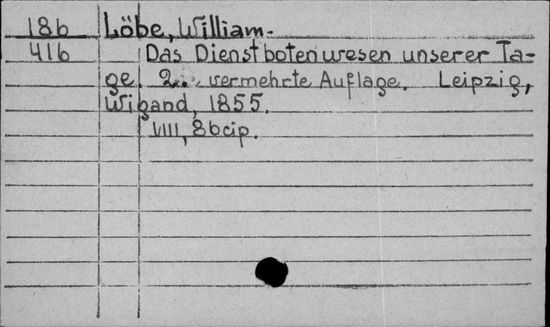 186 Löbe, William.
416 Das Dienstbotenwesen unserer Ta-
ge. 2.. vermehrte Auflage. Leipzig,
Wigand, 1855.
VIII, 86 cip.